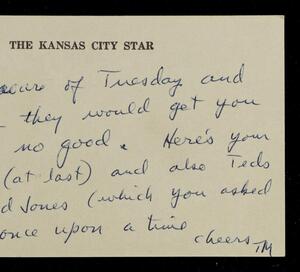 THE KANSAS CITY STAR
of Tuesday and
they would get you
no good. Here's your
(at last) and also Teds
Jones (which you asked
once upon a time
cheers TM